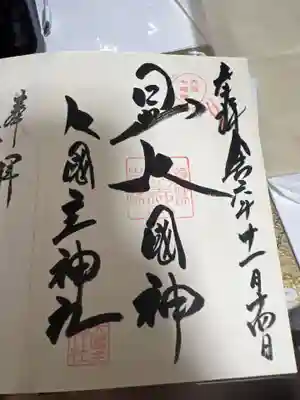 奉拝 令和六年十一月十四日
日出大國神
大國主神社
奉拝